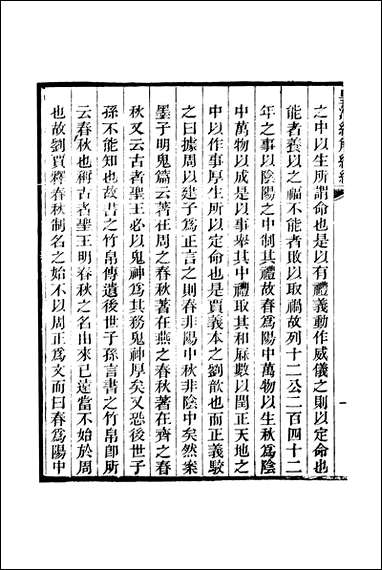 之中以生所謂命也是以有禮義動作威儀之則以定命也
能者養以之福不能者敗以取禍故列十二公二百四十二
年之事以陰陽之中制其禮故春爲陽中萬物以生秋爲陰
中萬物以成是以事舉其中禮取其和厤數以閏正天地之
中以作事厚生所以定命也是賈義本之劉歆也而正義駮
之曰據周以建子爲正言之則春非陽中秋非陰中矣然案
墨子明鬼篇云著在周之春秋著在燕之春秋著在齊之春
秋又云古者聖王必以鬼神爲其務鬼神厚矣又恐後世子
孫不能知也故書之竹帛傳遺後世子孫言書之竹帛卽所
云春秋也稱古者聖王明春秋之名由來已遠當不始於周
也故劉賈釋春秋制名之始不以周正爲文而曰春爲陽中